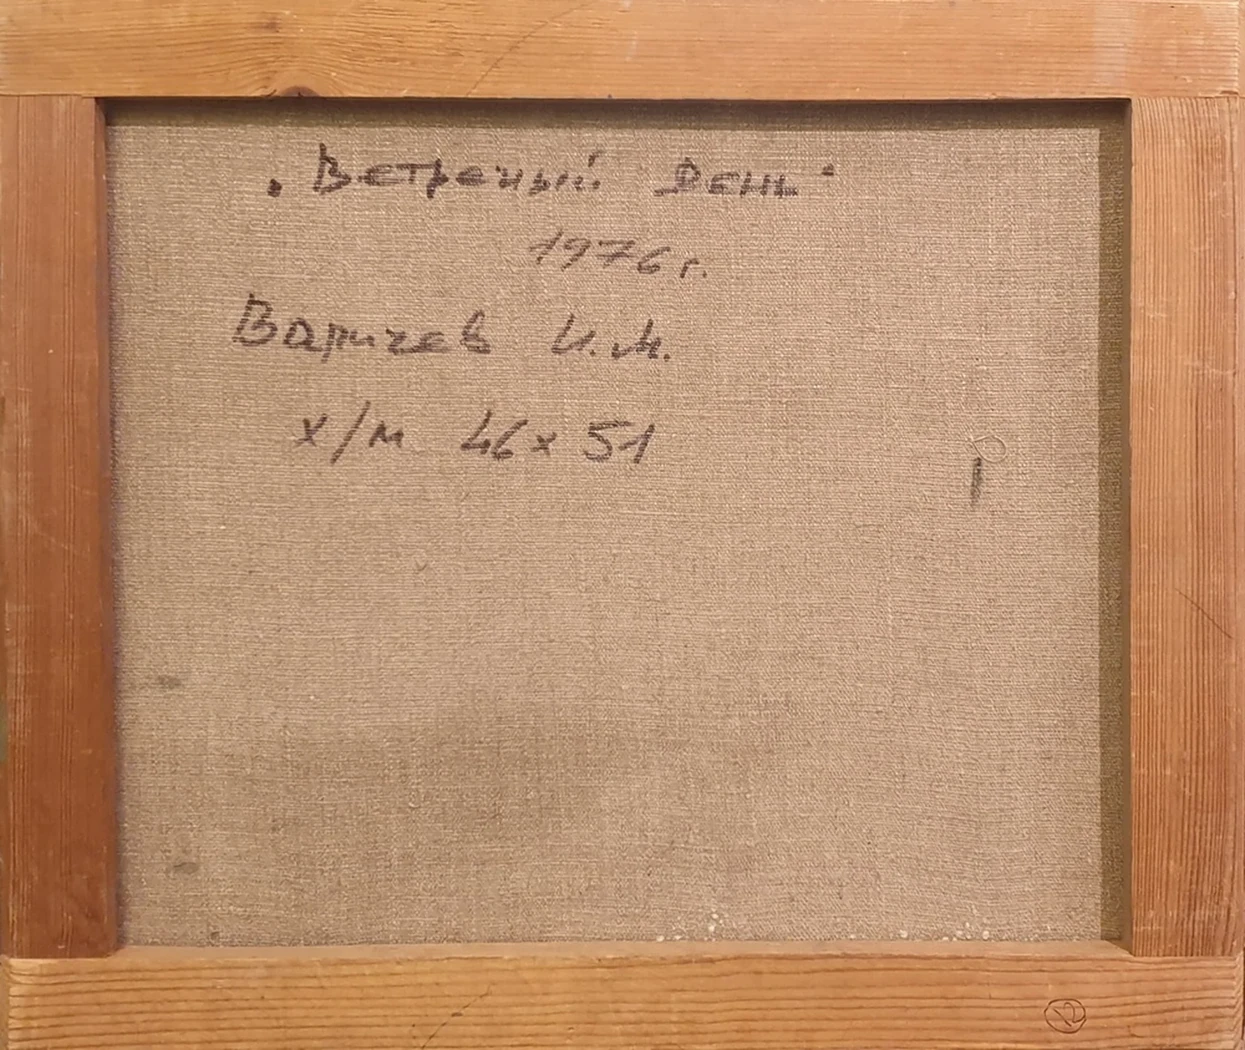 „Ветреный день"
1976 г.
Варичев И.М.
х/м 46х51
12